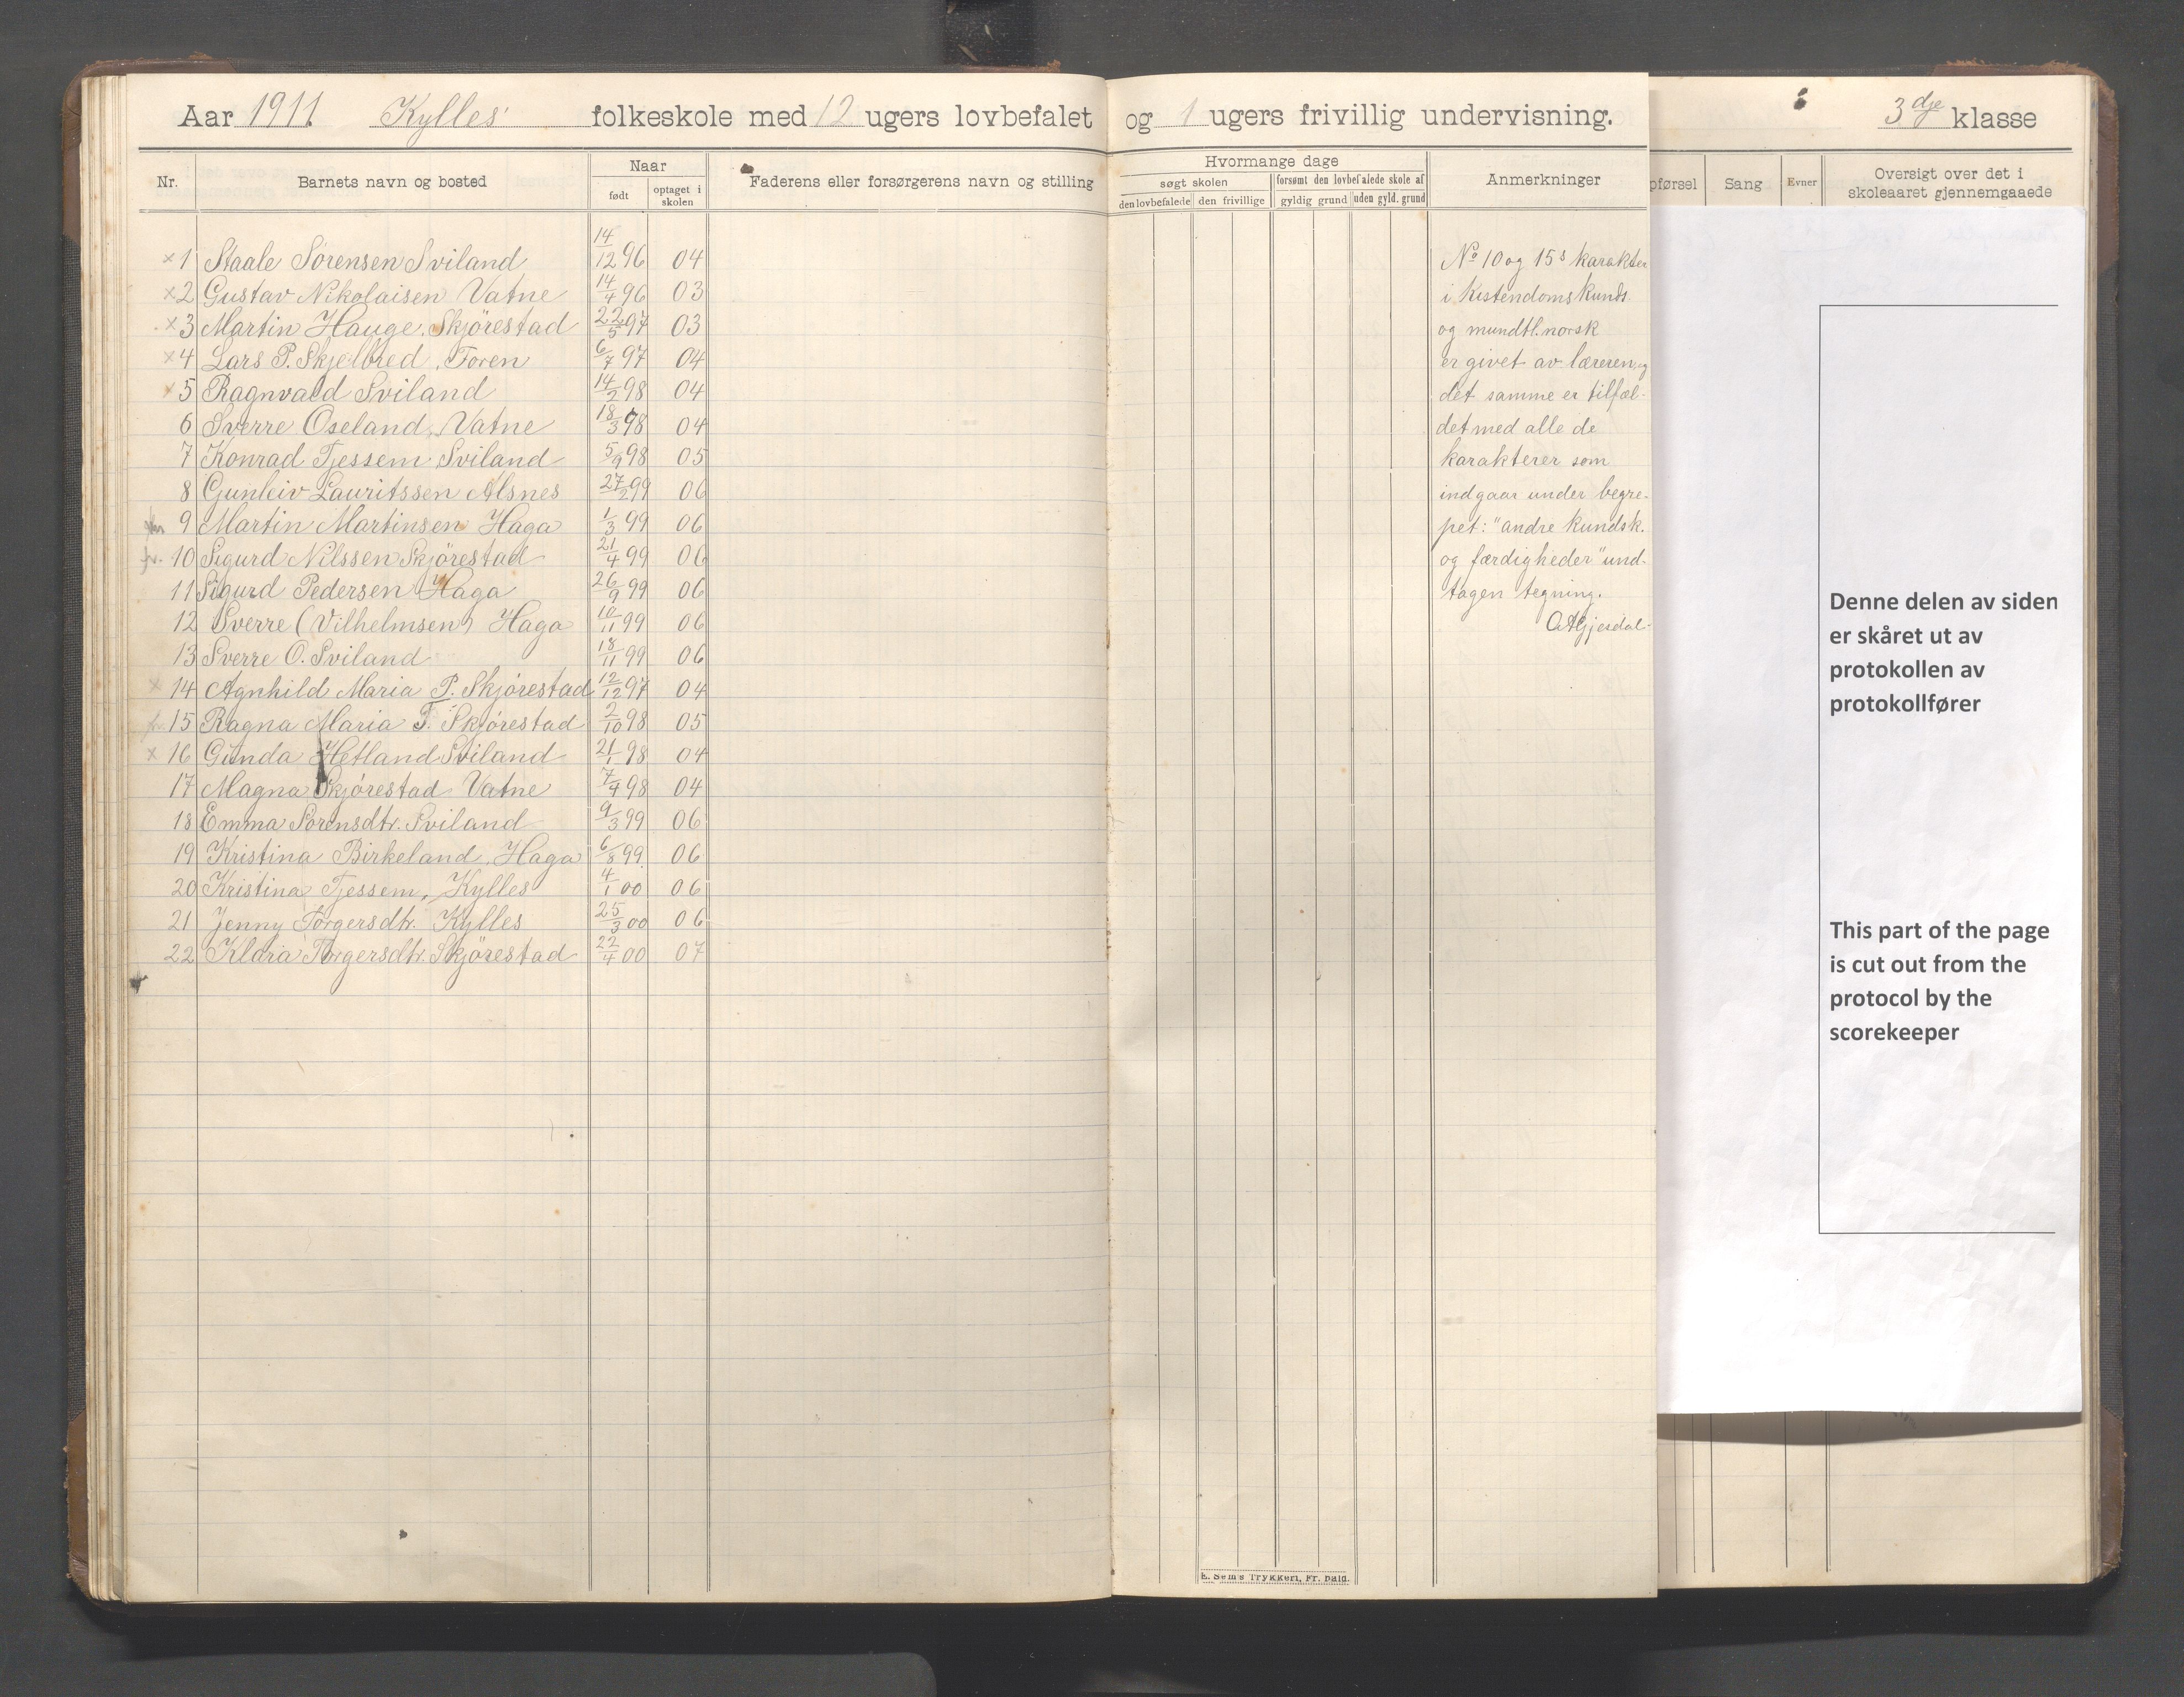 Aar 1911 Kylles folkeskole med 12 ugers lovbefalet og 1 ugers frivillig undervisning. 3dje klasse
Nr. Barnets navn og bosted Naar født optaget i skolen Faderens eller forsørgerens navn og stilling
Hvormange dage
søgt skolen forsømt den lovbefalede skole af
den lovbefalede den frivillige gyldig grund uden gyld. grund
Anmerkninger
pførsel Sang Evner Oversigt over det i
skoleaaret gjennemgaaede
x 1 Staale Sørensen Sviland 14/12 96 04
x 2 Gustav Nikolaisen Vatne 14/4 96 03
x 3 Martin Hauge, Skjørestad 22/5 97 03
x 4 Lars P. Skjelbred, Foren 6/7 97 04
x 5 Ragnvald Sviland 14/2 98 04
6 Sverre Oseland, Vatne 18/3 98 04
7 Konrad Tjessem Sviland 5/9 98 05
8 Gunleiv Lauritssen Alsnes 27/2 99 06
9 Martin Martinsen Haga 1/3 99 06
fr. 10 Sigurd Nilssen Skjørestad 21/4 99 06
11 Sigurd Pedersen Haga 26/9 99 06
12 Sverre (Vilhelmsen) Haga 10/11 99 06
13 Sverre O. Sviland 18/11 99 06
x 14 Agnhild Maria P. Skjørestad 12/12 97 04
fr. 15 Ragna Maria T. Skjørestad 2/10 98 05
x 16 Gunda Hetland Sviland 21/1 98 04
17 Magna Skjørestad Vatne 7/4 98 04
18 Emma Sørensdtr. Sviland 9/3 99 06
19 Kristina Birkeland, Haga 6/8 99 06
20 Kristina Tjessem, Kylles 4/1 00 06
21 Jenny Torgersdtr. Kylles 25/3 00 06
22 Klara Torgersdtr. Skjørestad 22/4 00 07
No 10 og 15s karakter
i Kistendomskunds.
og mundtl. norsk
er givet av læreren, og
det samme er tilfæl-
det med alle de
karakterer som
indgaar under begre-
pet: "andre kundsk.
og færdigheder" und-
tagen tegning.
OAGjesdal-
Denne delen av siden
er skåret ut av
protokollen av
protokollfører
This part of the page
is cut out from the
protocol by the
scorekeeper
E. Sem's Trykkeri, Fr. hald.